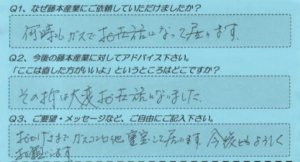 Q1、なぜ藤本産業にご依頼していただけましたか？
何時もガスでお世話になって居ります
Q2、今後の藤本産業に対してアドバイス下さい。
「ここは直した方がいいよ」というところはどこですか？
その折は大変お世話になりました
Q3、ご要望・メッセージなど、ご自由にご記入下さい。
おかげさまでガスコンロ他重宝して居ります 今後ともよろしく
お願いします